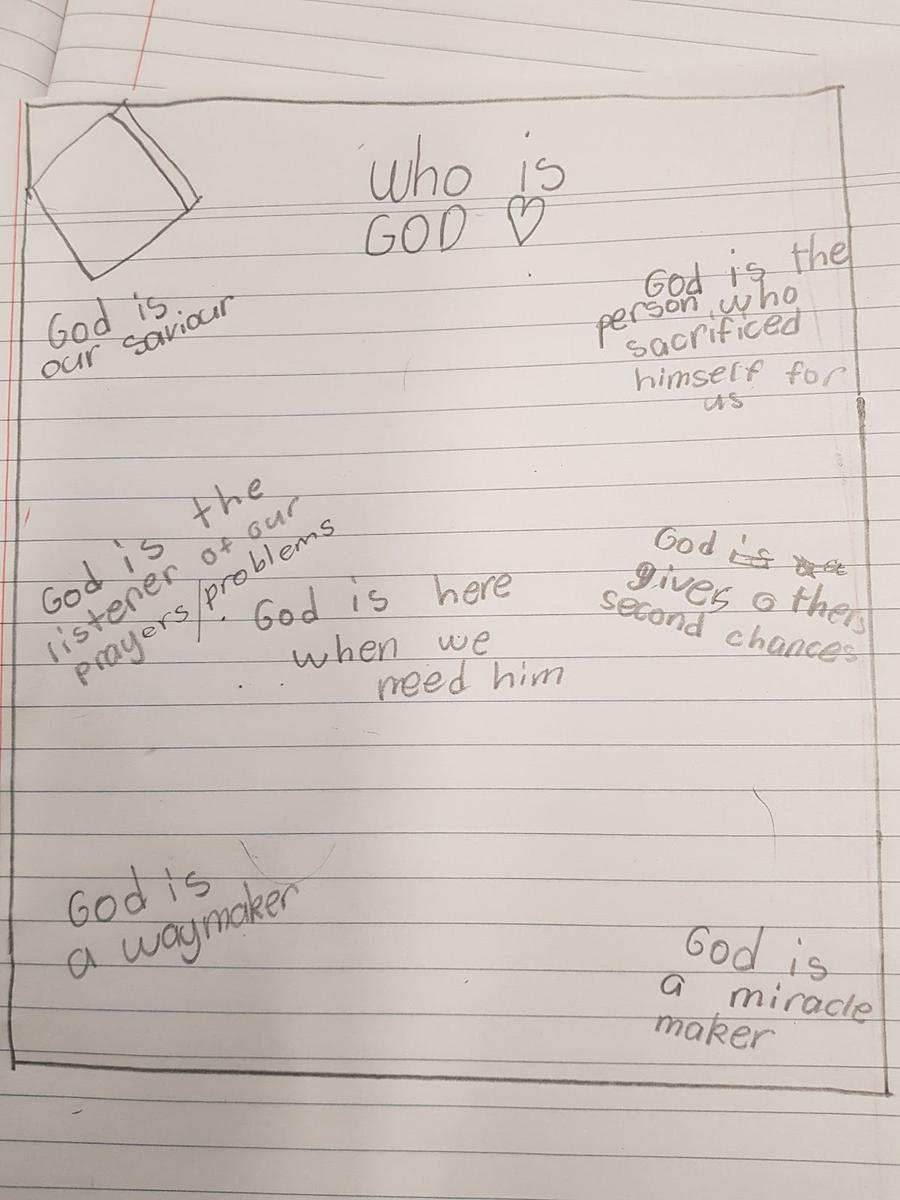 Who is
GOD ♡
God is
our saviour
God is the
person who
sacrificed
himself for
us
God is the
listener of our
prayers/problems
God is here
when we
need him
God is
gives others
second chances
God is
a waymaker
God is
a miracle
maker